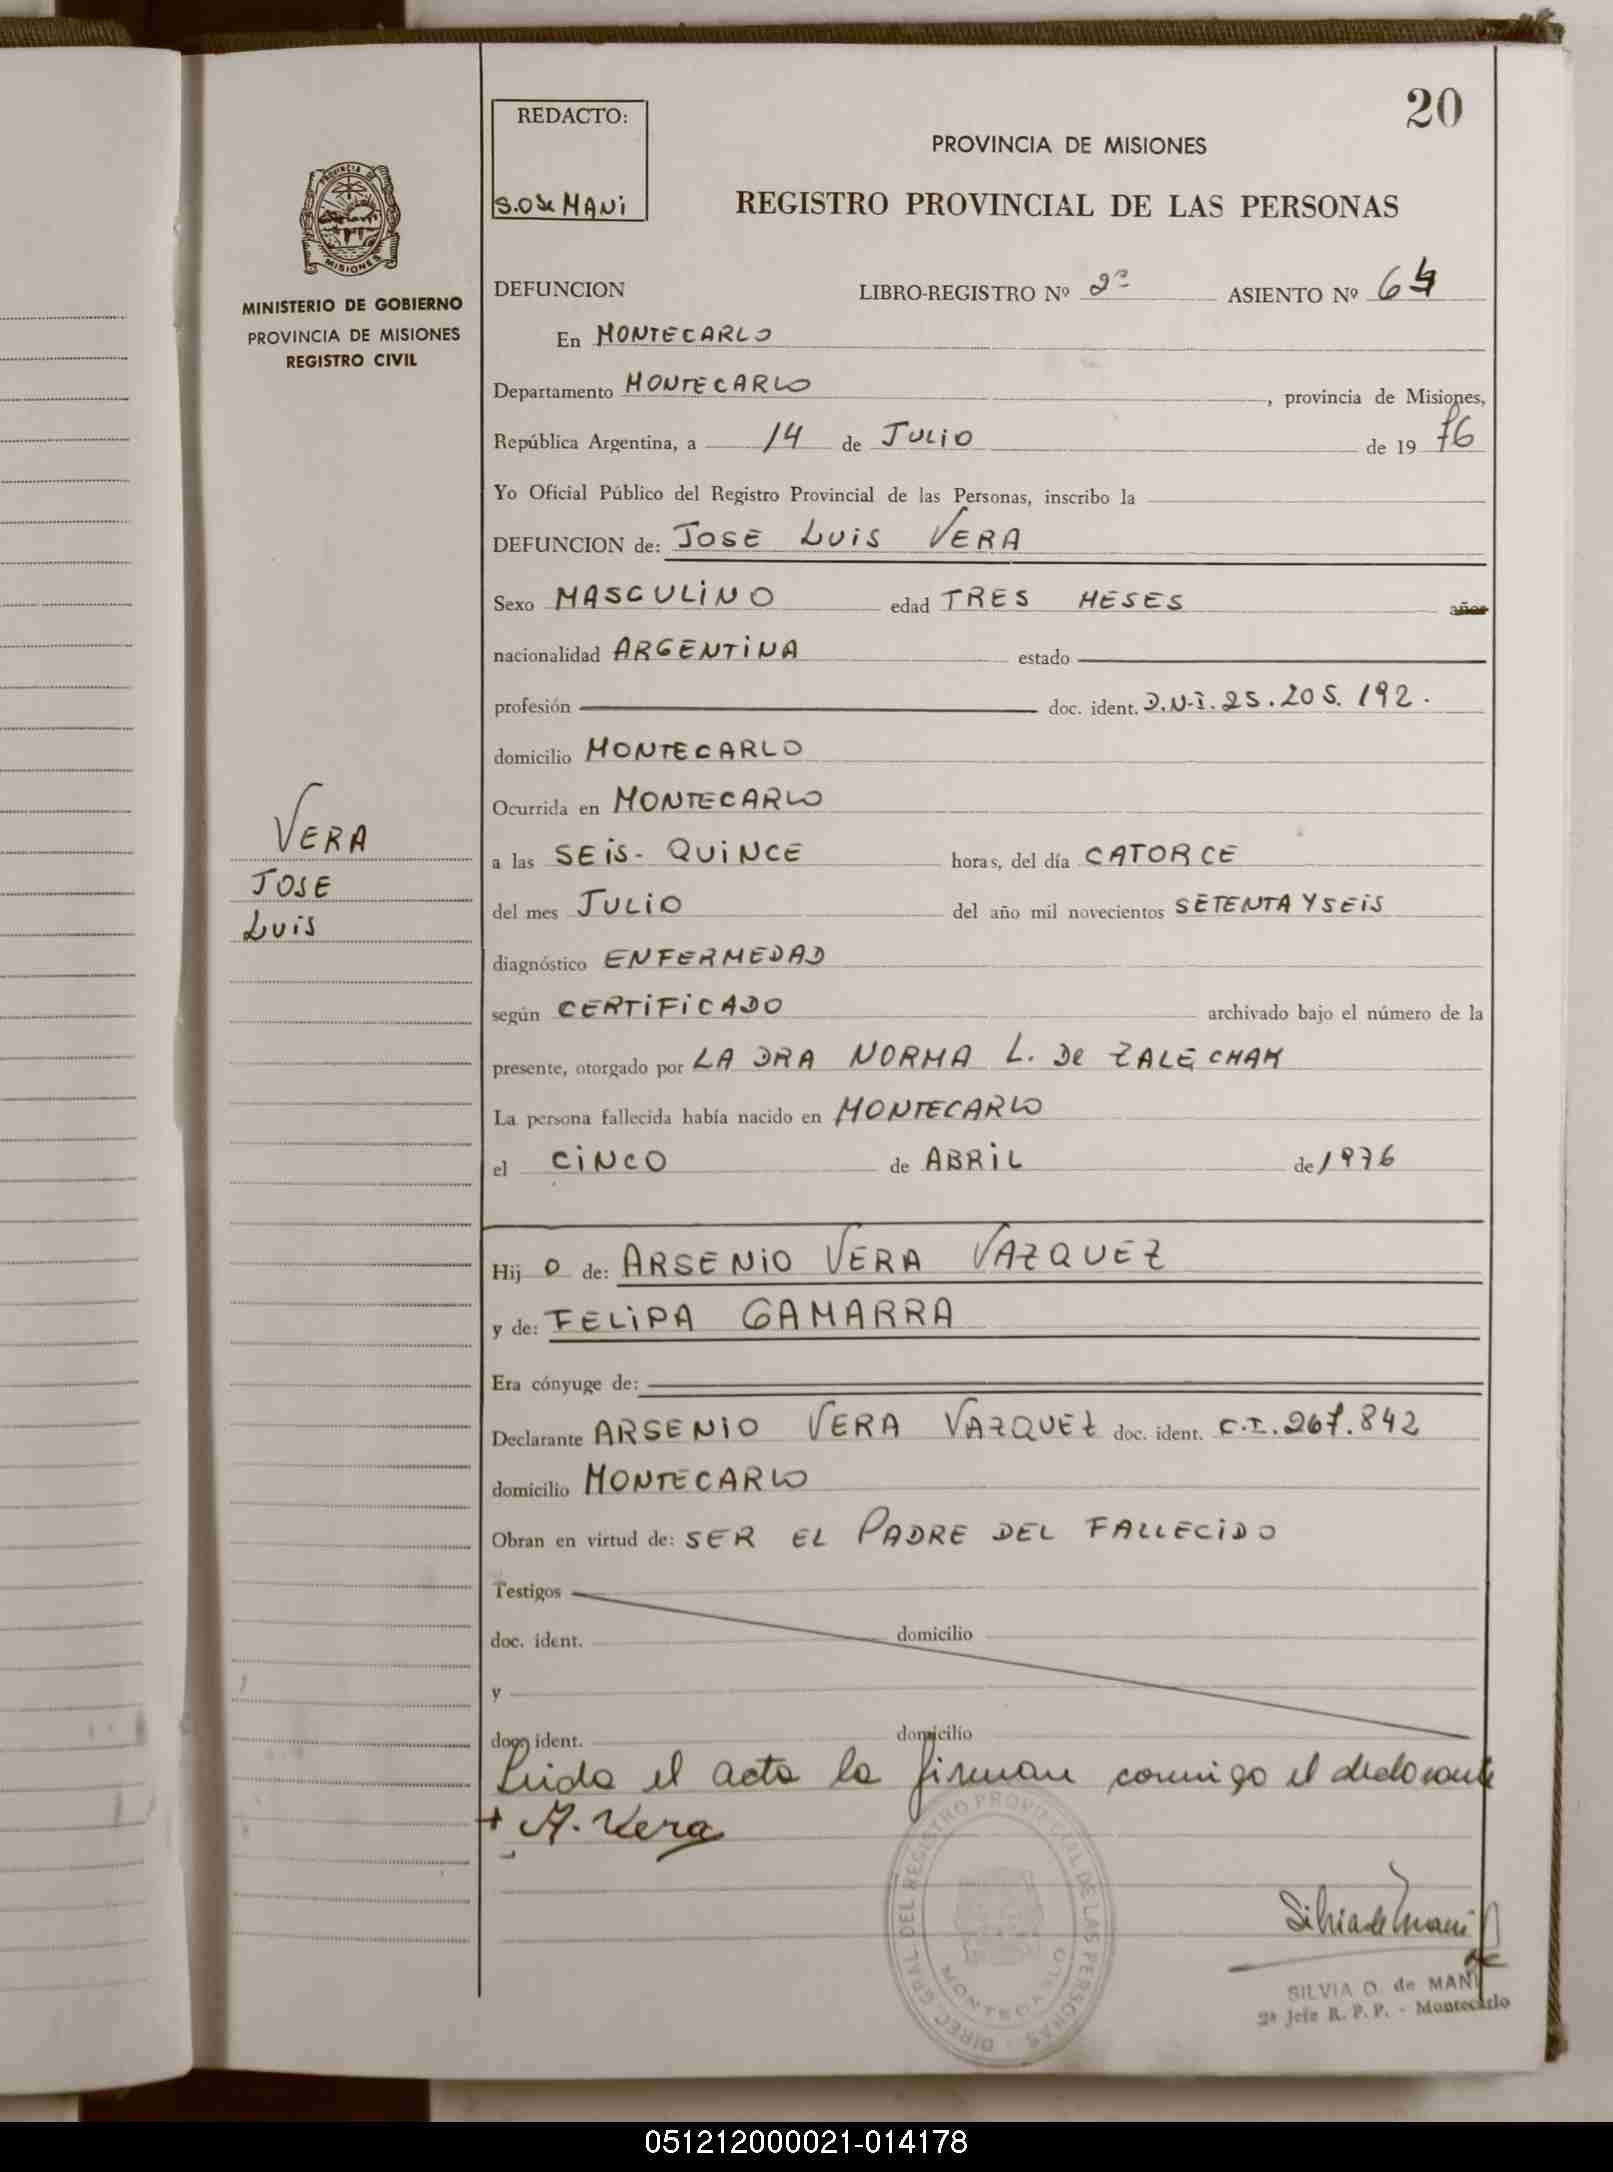 20
REDACTO:
S.O de MANi
PROVINCIA DE MISIONES
REGISTRO PROVINCIAL DE LAS PERSONAS
PROVINCIA DE
MISIONES
MINISTERIO DE GOBIERNO
PROVINCIA DE MISIONES
REGISTRO CIVIL
DEFUNCION LIBRO-REGISTRO Nº 2º ASIENTO Nº 64
En MONTECARLO
Departamento MONTECARLO, provincia de Misiones,
República Argentina, a 14 de JULiO de 19 76
Yo Oficial Público del Registro Provincial de las Personas, inscribo la
DEFUNCION de: JOSE LUiS VERA
Sexo MASCULiNO edad TRES MESES años
nacionalidad ARGENTiNA estado
profesión doc. ident. D.N.I. 25.205.192.
domicilio MONTECARLO
Ocurrida en MONTECARLO
VERA
JOSE
LUiS
a las SEiS- QUiNCE horas, del día CATORCE
del mes JULiO del año mil novecientos SETENTA Y SEiS
diagnóstico ENFERMEDAD
según CERTiFiCADO archivado bajo el número de la
presente, otorgado por LA DRA NORMA L. De ZALECHAK
La persona fallecida había nacido en MONTECARLO
el CiNCO de ABRiL de 1976
Hij O de: ARSENiO VERA VAZQUEZ
y de: FELiPA GAMARRA
Era cónyuge de:
Declarante ARSENiO VERA VAZQUEZ doc. ident. C.I. 267.842
domicilio MONTECARLO
Obran en virtud de: SER EL PADRE DEL FALLECiDO
Testigos
doc. ident. domicilio
y
doc. ident. domicilio
Leida el acta la firman conmigo el declarante
+ A. Vera
DIREC. GRAL. DEL REGISTRO PROVINCIAL DE LAS PERSONAS
MONTECARLO
Silvia de Mani
SILVIA O. de MANI
2º Jefe R. P. P. - Montecarlo
051212000021-014178